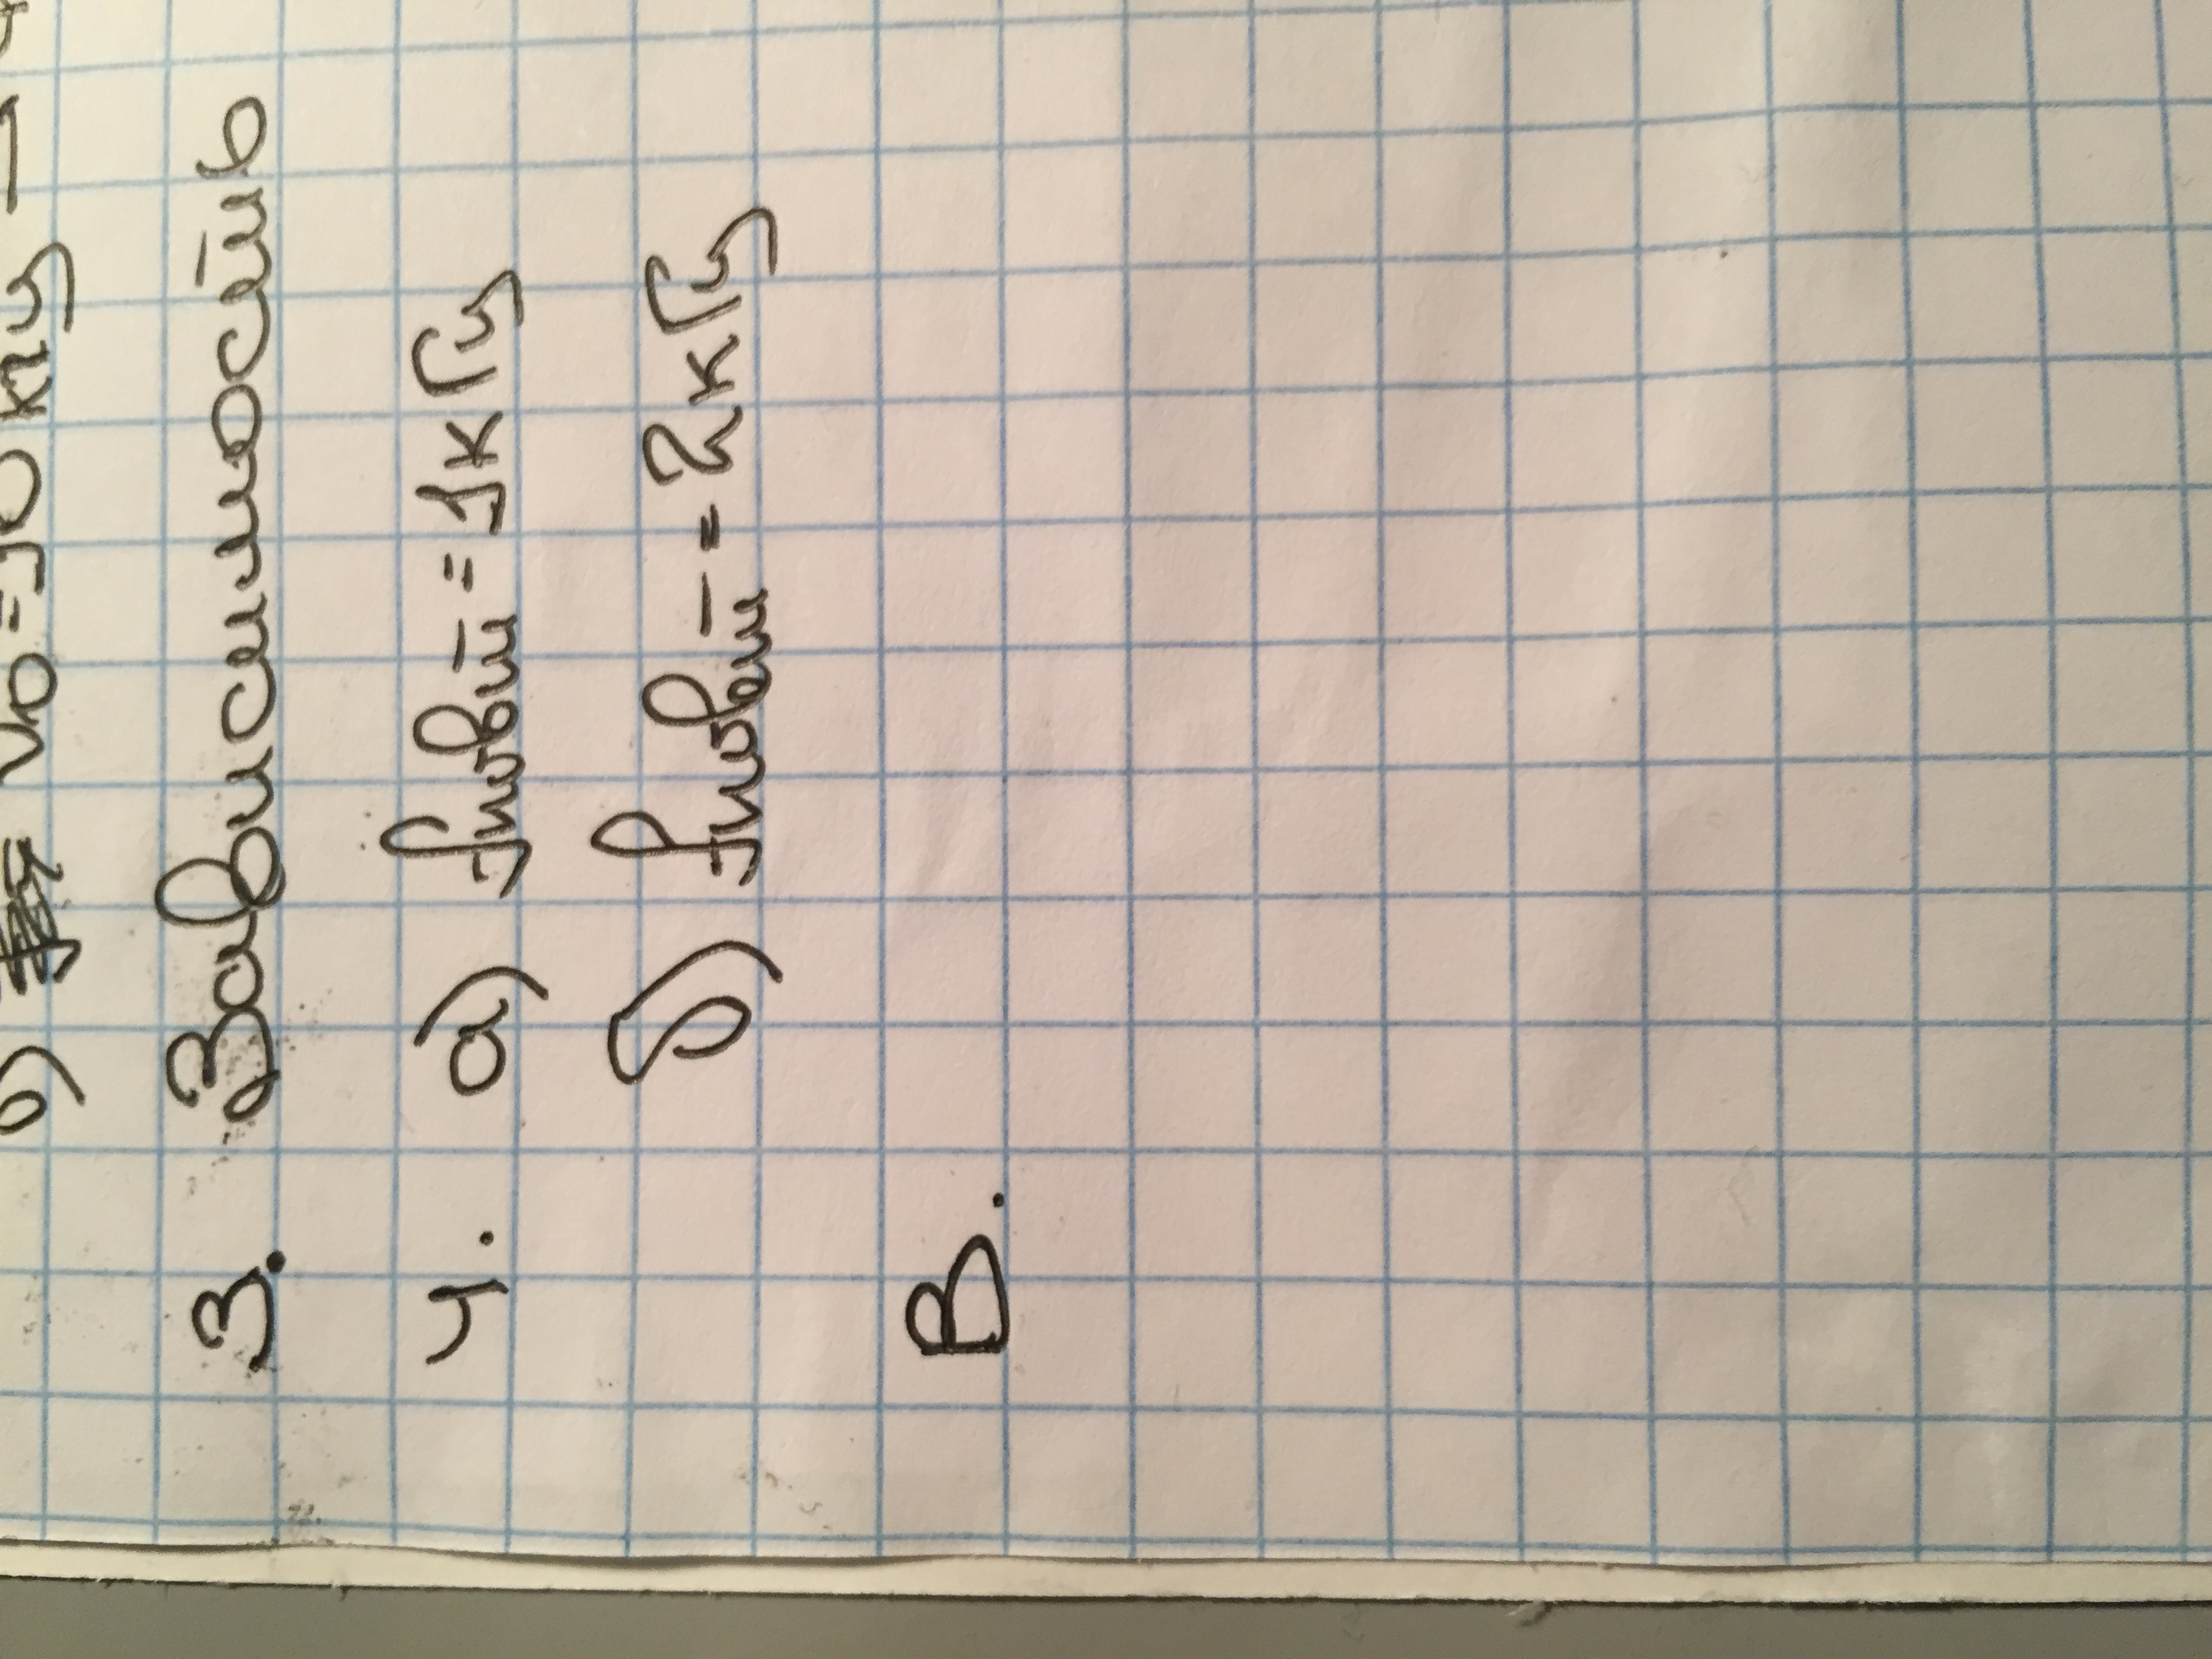 б) ν₀=10 кГц →
3. Зависимость
4. а) fповт = 1 кГц
б) fповт = 2 кГц
В.